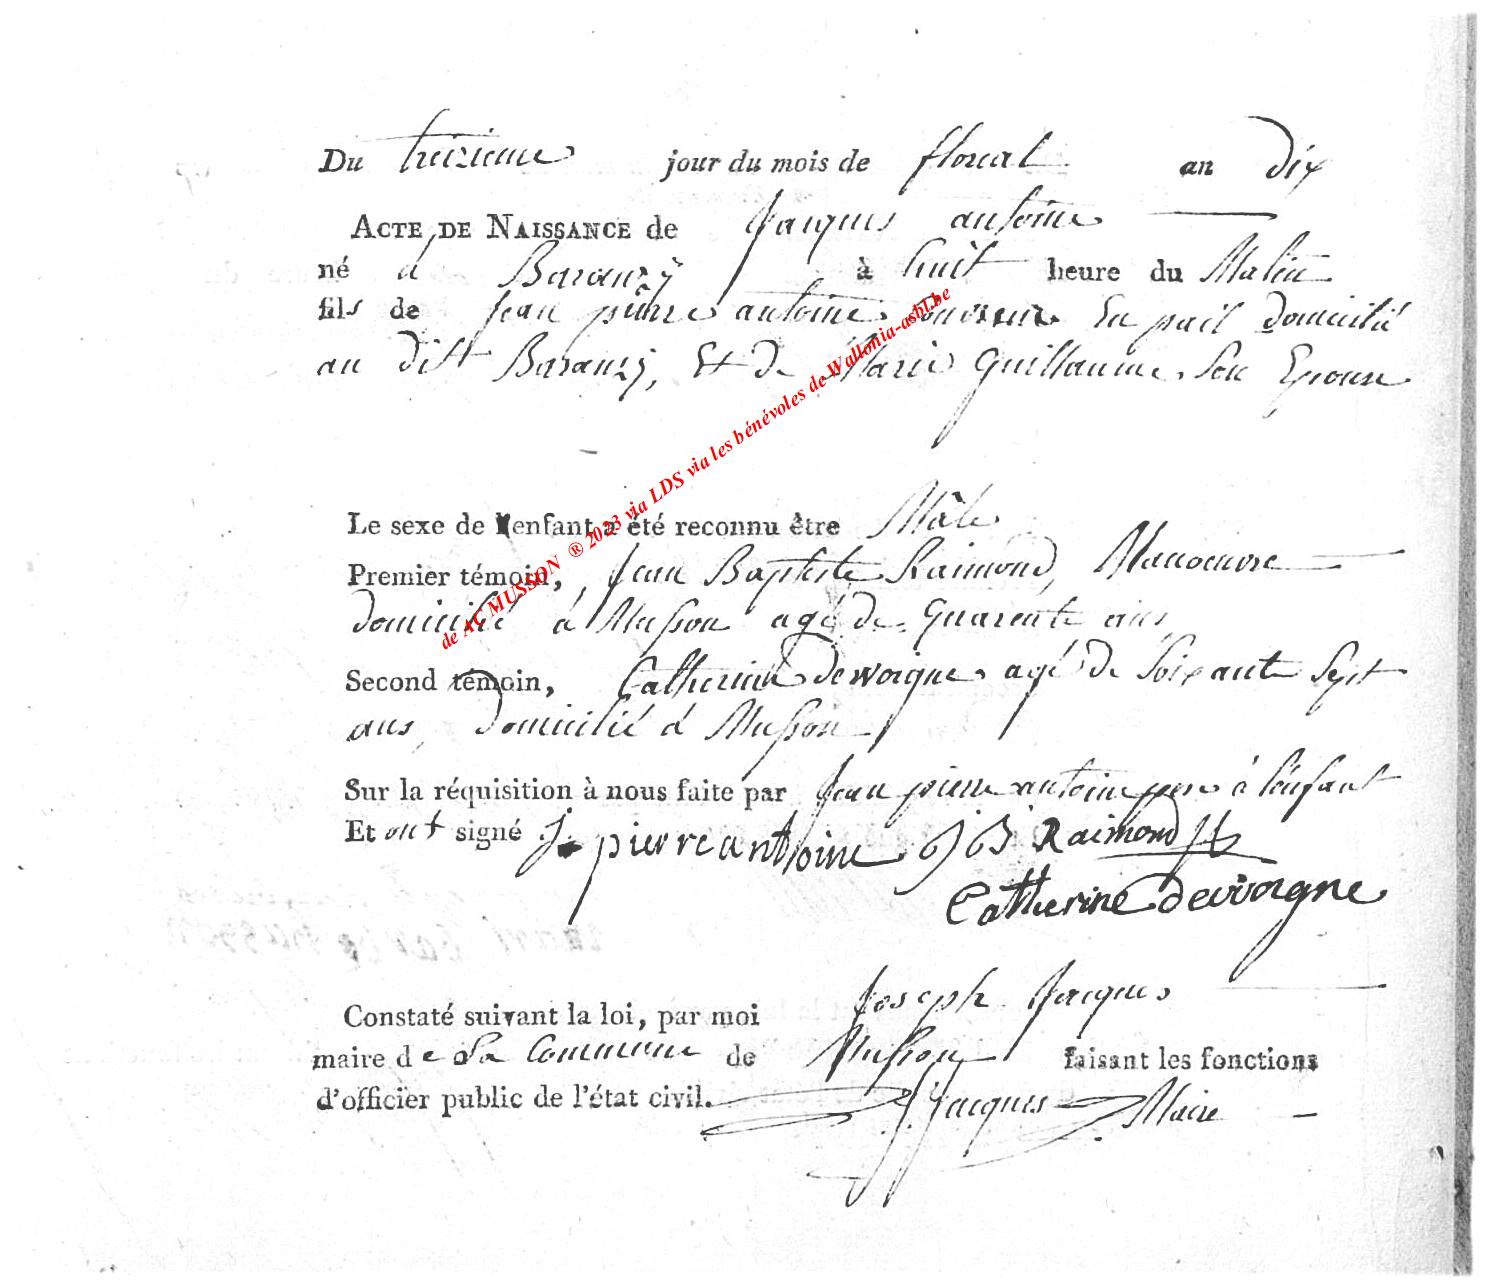 Du treizieme jour du mois de floreal an dix
ACTE DE NAISSANCE de Jacques antoine
né à Baranzÿ à huit heure du Matin
fils de Jean pierre antoine Couvreur En pail domicilié
au dist Baranzÿ, Et de Marie Guillaume Son Epouse
Le sexe de l'enfant a été reconnu être Mâle
Premier témoin, Jean Baptiste Raimond, Manoeuvre
domicilié à Musson agé de quarente ans
Second témoin, Catherine dewoigne agé de Soixante Sept
ans, domicilié à Musson
Sur la réquisition à nous faite par Jean pierre antoine pere à l'enfant
Et ont signé J pierre antoine J B Raimond
Catherine dewoigne
Constaté suivant la loi, par moi Joseph Jacques
maire de La Commune de Musson faisant les fonctions
d'officier public de l'état civil. J. Jacques Maire
de AC MUSSON ® 2023 via LDS via les bénévoles de Wallonia-asbl.be